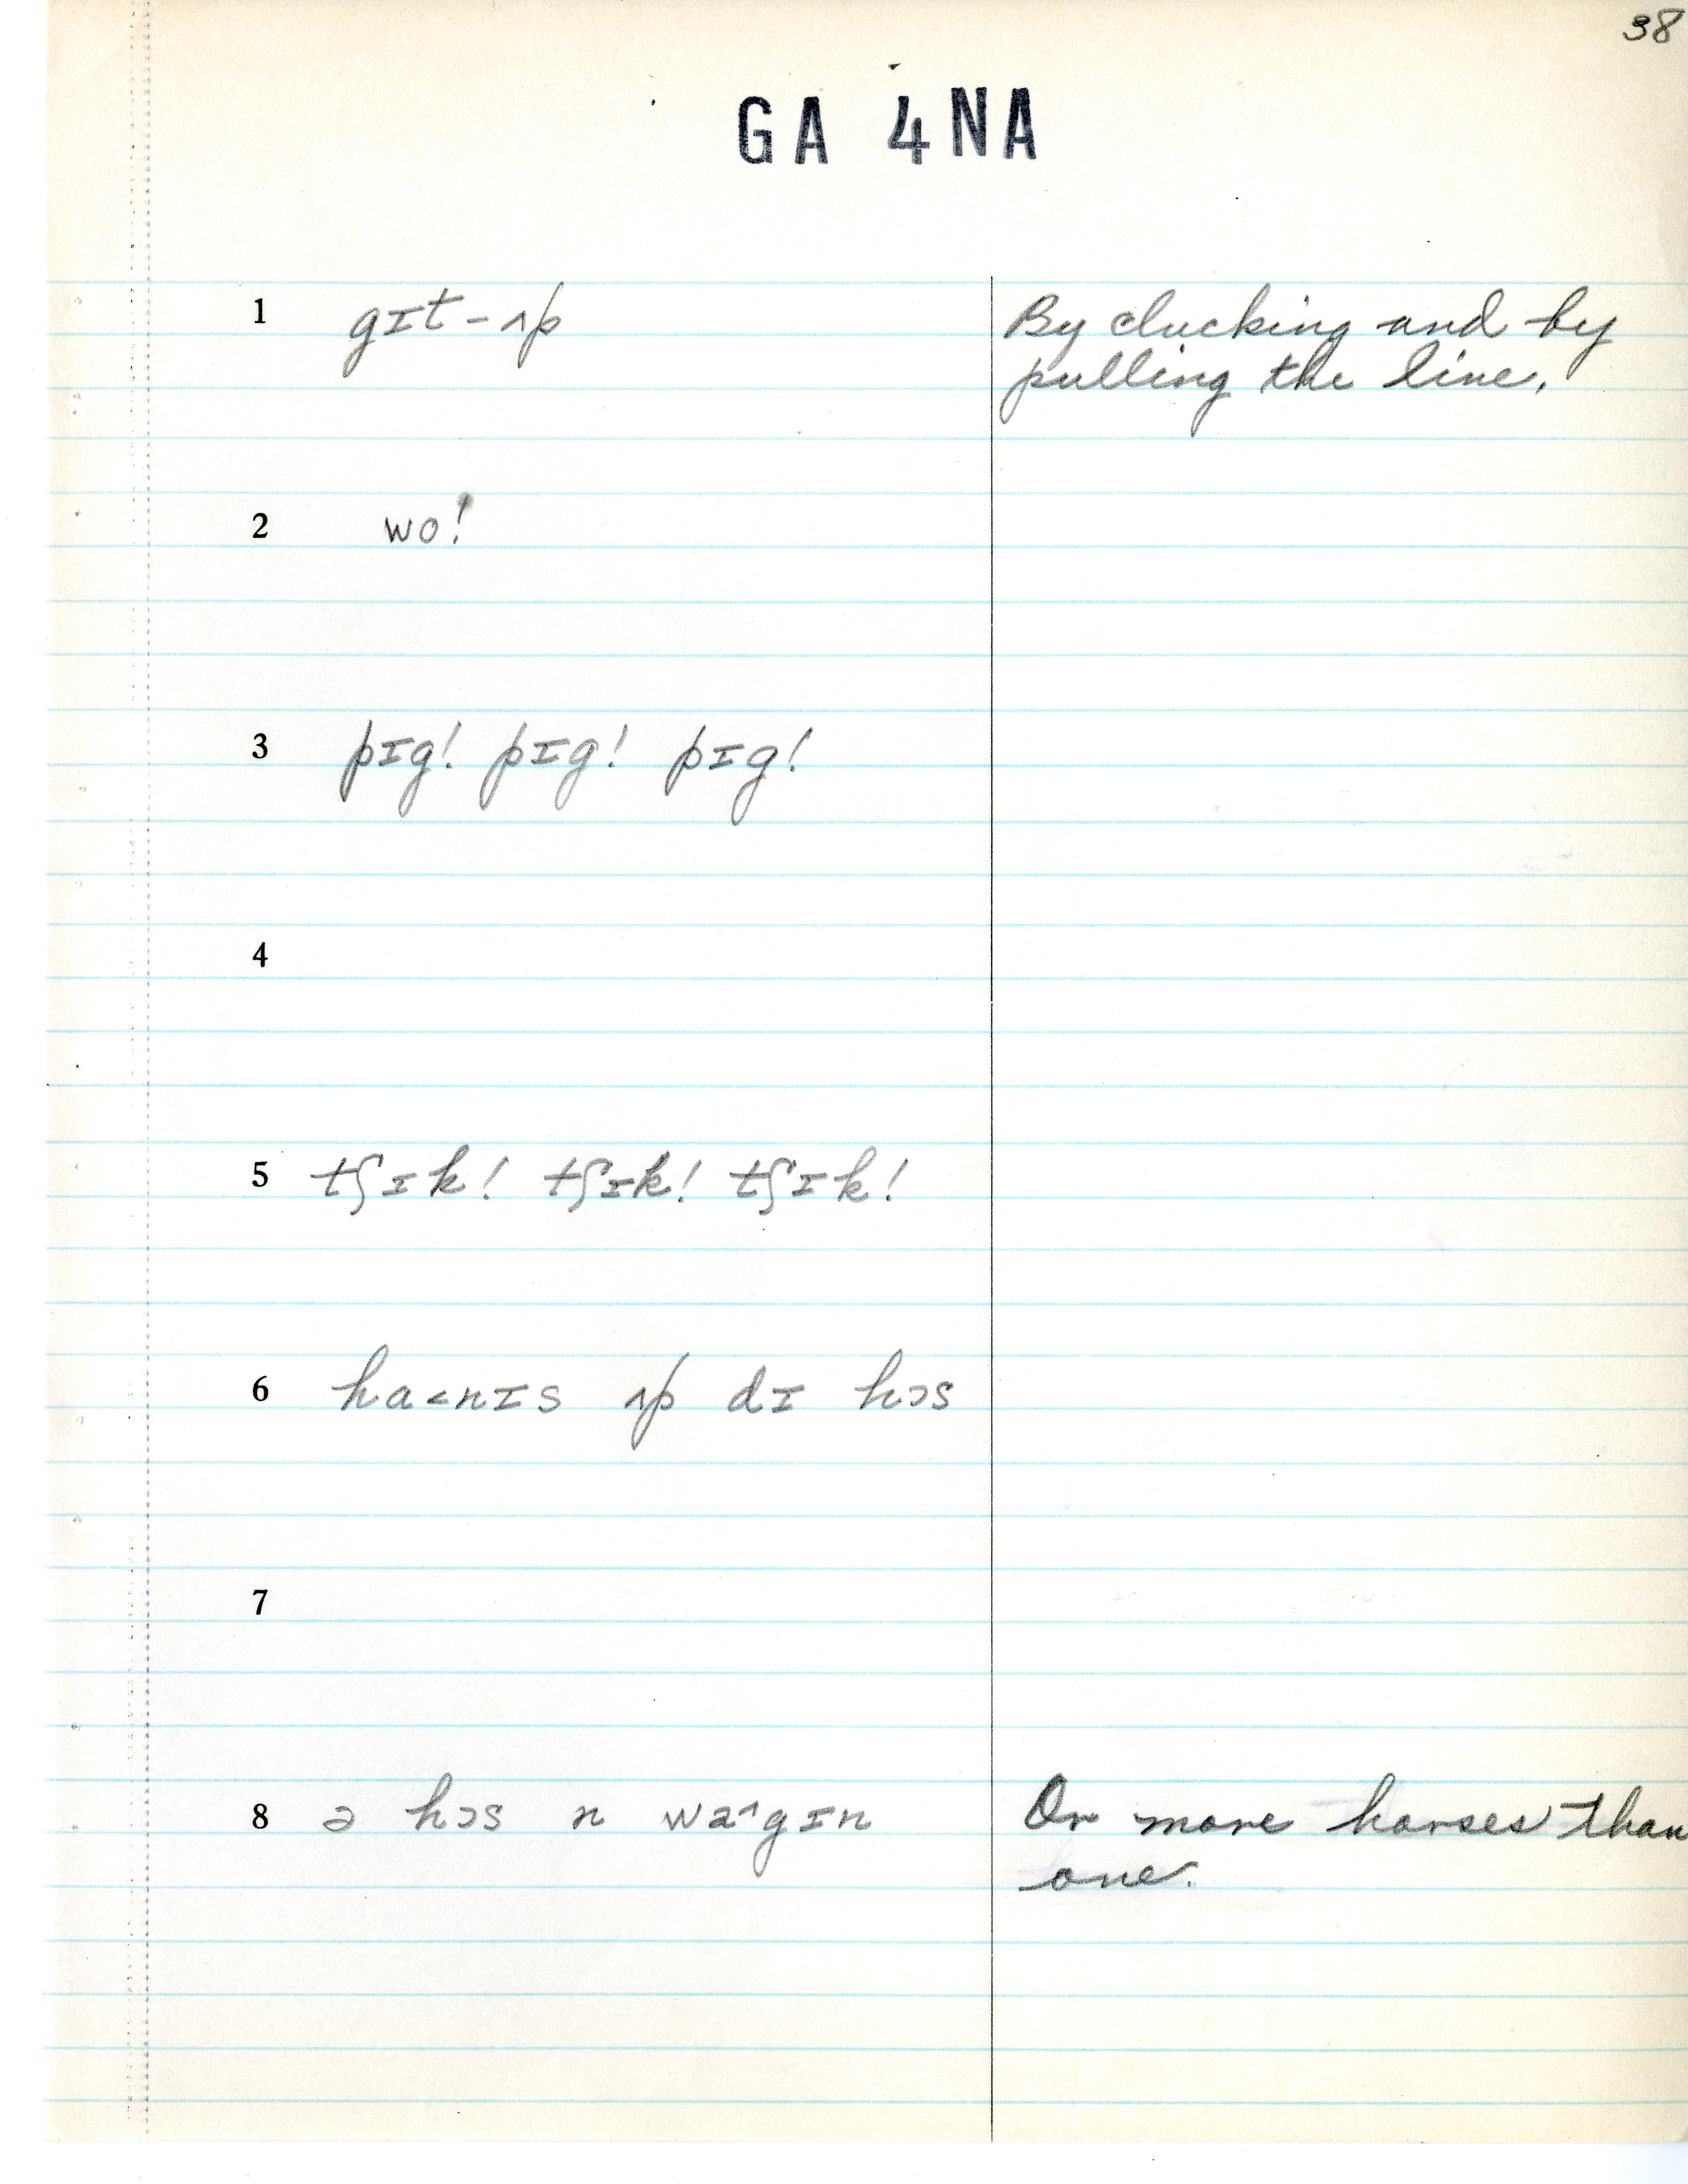 38
GA 4NA
1 gɪt-ʌp
By clucking and by
pulling the line.
2 wo!
3 pɪg! pɪg! pɪg!
4
5 tʃɪk! tʃɪk! tʃɪk!
6 ha<nɪs ʌp dɪ hɔs
7
8 ə hɔs n wa^gɪn
Or more horses than
one.